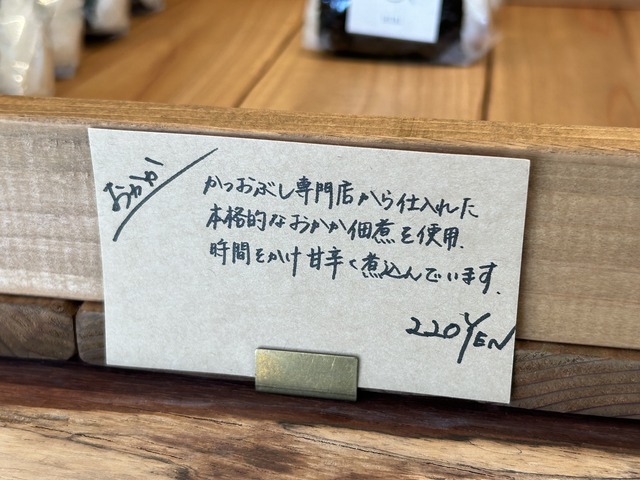 おかか
かつおぶし専門店から仕入れた
本格的なおかか佃煮を使用.
時間をかけ甘辛く煮込んでいます.
220YEN